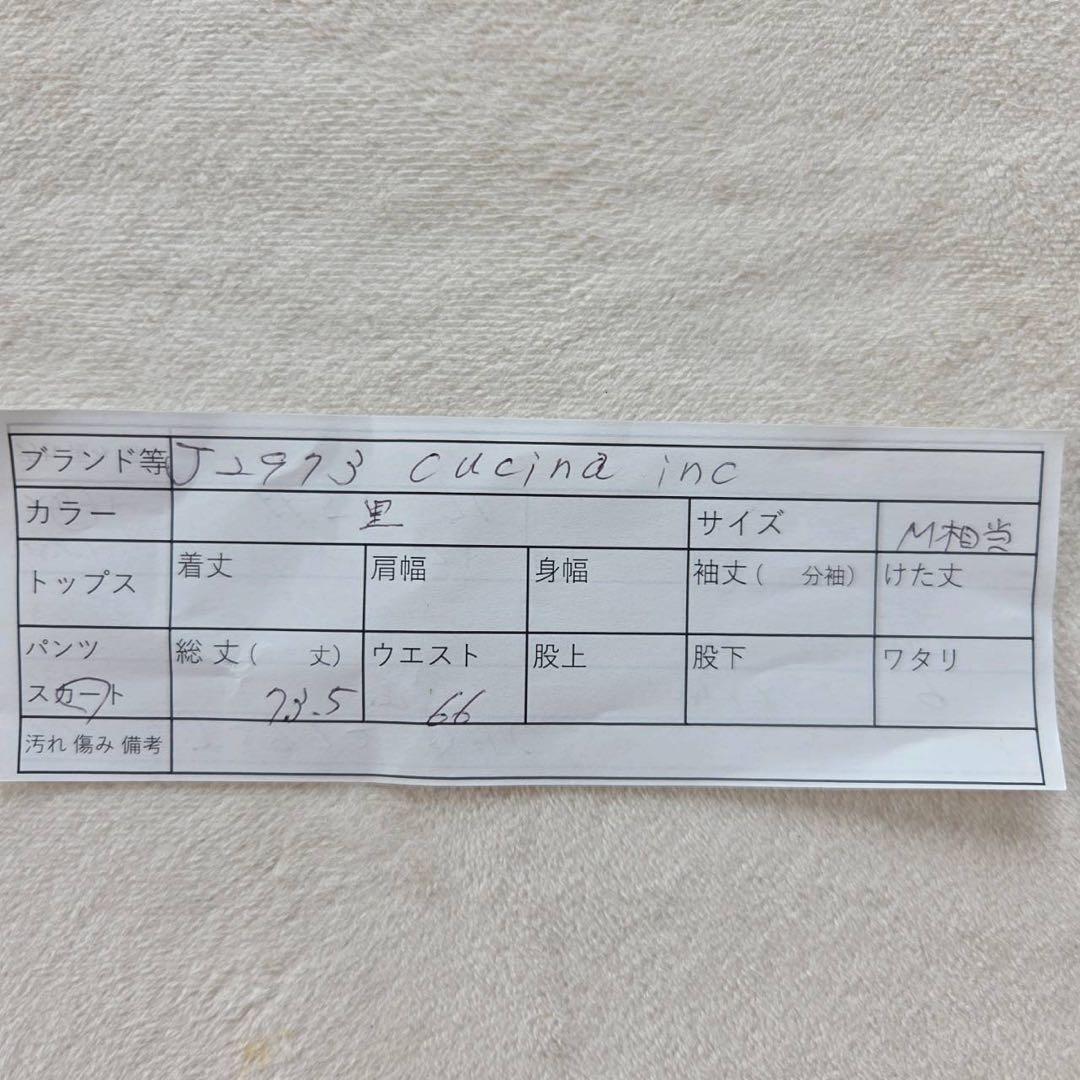 ブランド等 J2973 cucina inc
カラー 黒 サイズ M相当
トップス 着丈 肩幅 身幅 袖丈( 分袖) けた丈
パンツ 総丈( 丈) ウエスト 股上 股下 ワタリ
スカート 73.5 66
汚れ 傷み 備考